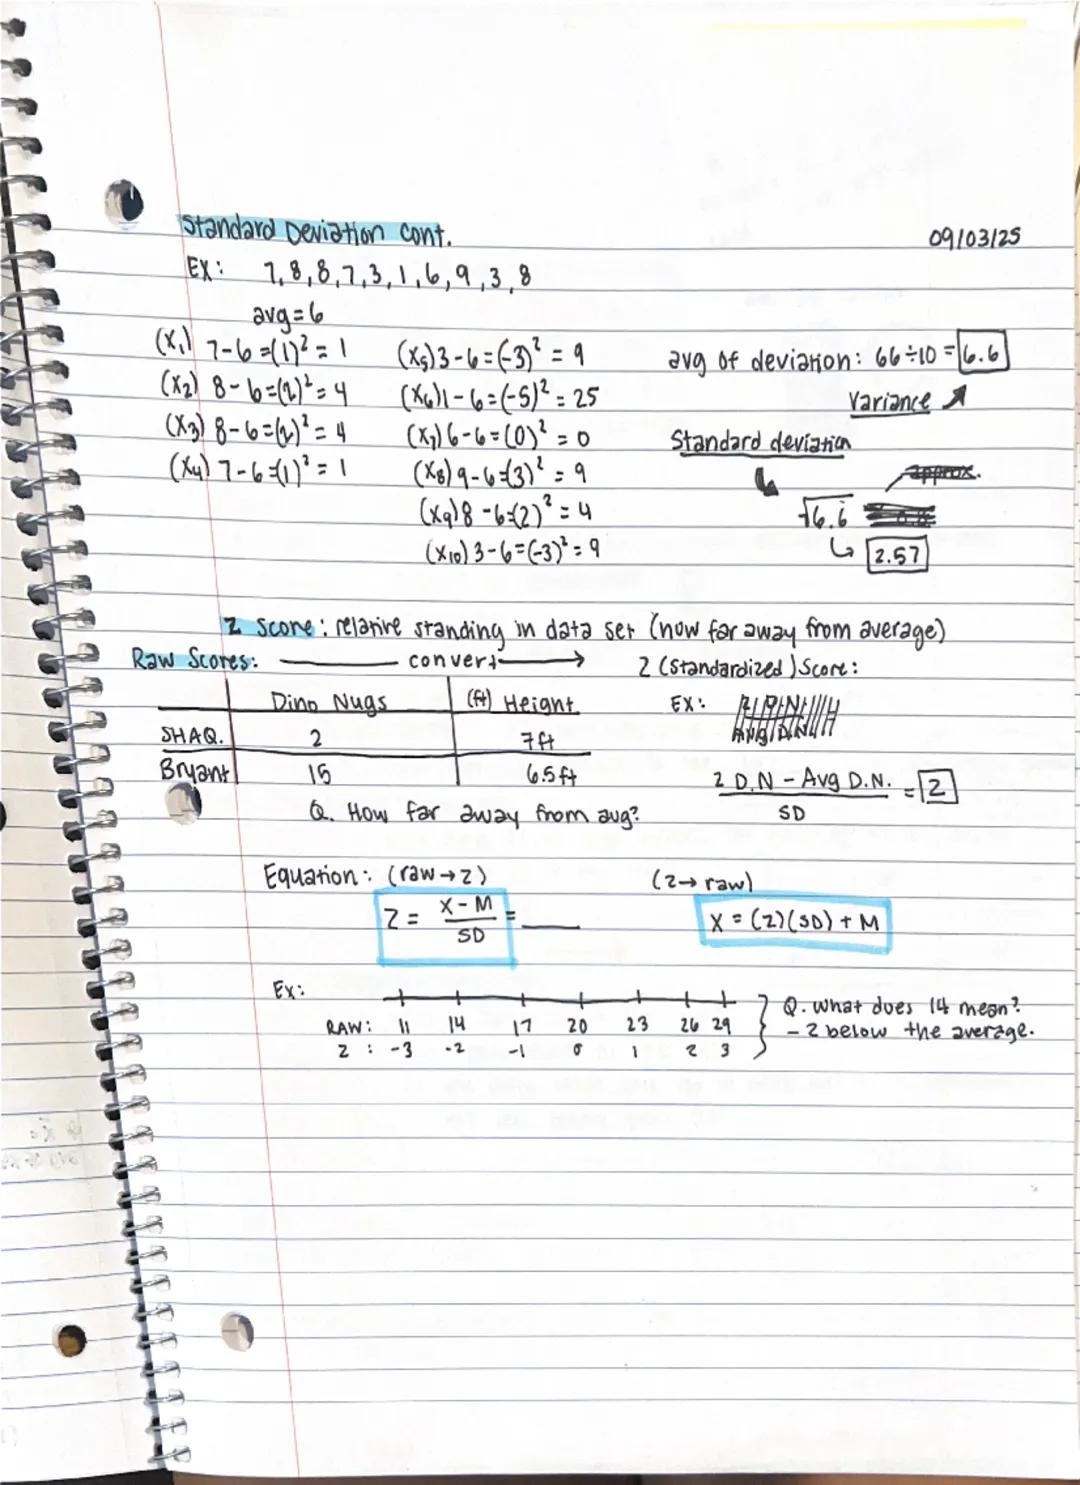 Standard Deviation Cont.
09/03/25
EX: 7,8,8,7,3,1,6,9,3,8
avg=6
(x₁) 7-6=(1)² = 1
(x₂) 8-6=(2)² = 4
(x₃) 8-6=(2)² = 4
(x₄) 7-6=(1)² = 1
(x₅) 3-6=(-3)² = 9
(x₆) 1-6=(-5)² = 25
(x₇) 6-6=(0)² = 0
(x₈) 9-6=(3)² = 9
(x₉) 8-6=(2)² = 4
(x₁₀) 3-6=(-3)² = 9
avg of deviation: 66÷10 = 6.6
Variance
Standard deviation
approx.
√6.6
↳ 2.57
Z Score: relative standing in data set (how far away from average)
Raw Scores: convert → Z (Standardized) Score:
Dino Nugs (ft) Height
SHAQ. 2 7ft
Bryant 15 6.5ft
Q. How far away from avg?
EX:
2 D.N - Avg D.N. = Z
SD
Equation: (raw→z)
Z = X-M = ____
SD
(z→ raw)
X = (z)(SD) + M
Ex:
RAW: 11 14 17 20 23 26 29
Z : -3 -2 -1 0 1 2 3
Q. What does 14 mean?
- 2 below the average.